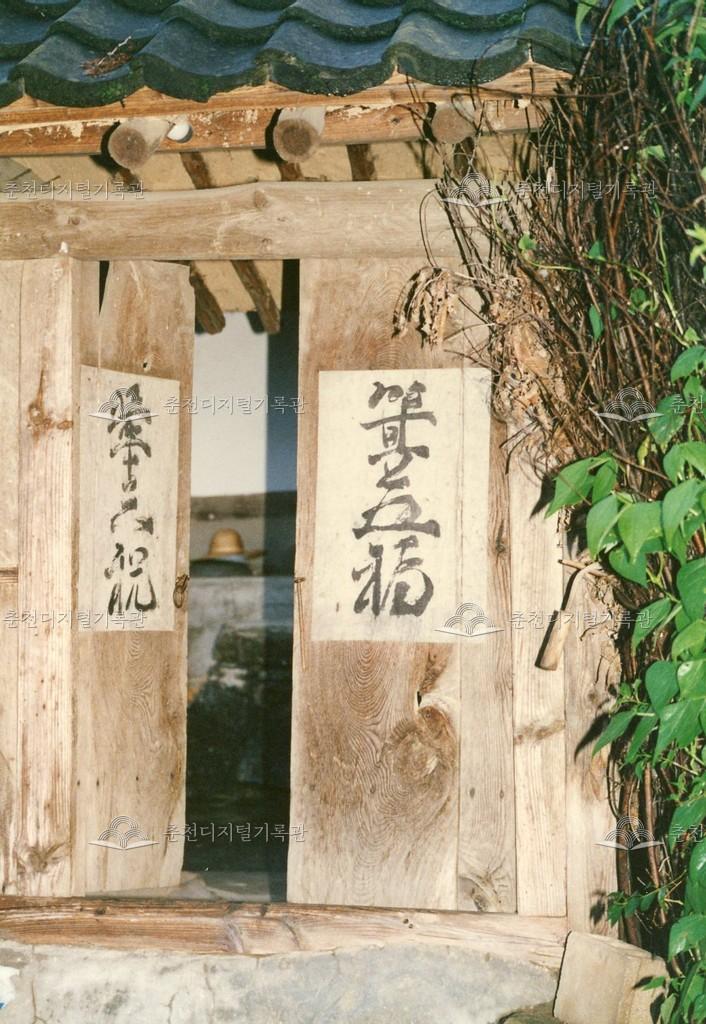 춘천디지털기록관
춘천디지털기록관
춘천디지털기록관
춘천
箕五福
華三祝
춘천디지털기록관
춘천디지털기록관
춘천디지털기록관
춘천